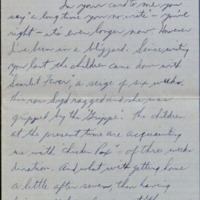 In your card to me, you
say "a long time you no write" - you're
right - it's even longer now. However
I've been in a blizzard. Since writing
you last the children came down with
Scarlet Fever, a seige of six weeks.
then and she was
gripped by the Grippe. the children
at the present time are acquainting
me with "Chicken Pox" - of three weeks
duration. And what with getting home
a little after seven, then having